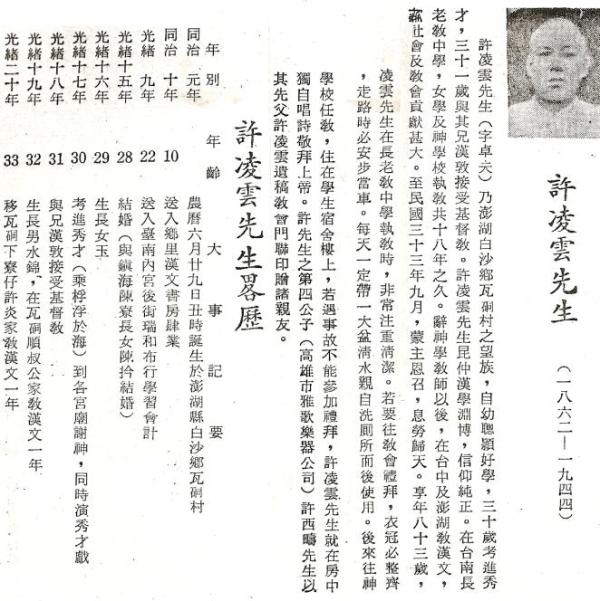 許凌雲先生
(一八六二—一九四四)
許凌雲先生(字卓天)乃澎湖白沙鄉瓦硐村之望族,自幼聰穎好學,三十歲考進秀
才,三十一歲與其兄漢敦接受基督教。許凌雲先生昆仲漢學淵博,信仰純正。在台南長
老教中學,女學及神學校執教共十八年之久。辭神學教師以後,在台中及澎湖教漢文,
社會及教會貢献甚大。至民國三十三年九月,蒙主恩召,息勞歸天。享年八十三歲,
凌雲先生在長老教中學執教時,非常注重清潔。若要往教會禮拜,衣冠必整齊
,走路時必安步當車。每天一定帶一大盆清水親自洗厠所而後使用。後來往神
學校任敎,住在學生宿舍樓上,若遇事故不能參加禮拜,許凌雲先生就在房中
獨自唱詩敬拜上帝。許先生之第四公子(高雄市雅歌樂器公司)許西疇先生以
其先父許凌雲遺稿敎會門聯印贈諸親友。
許凌雲先生畧歷
年別 年齡 大事記要
同治 元年 農曆六月廿九日丑時誕生於澎湖縣白沙鄉瓦硐村
同治 十年 10 送入鄉里漢文書房肆業
光緒 九年 22 送入臺南內宮後街瑞和布行學習會計
光緒十五年 28 結婚(與鎭海陳寮長女陳扲結婚)
光緒十六年 29 生長女玉
光緒十七年 30 考進秀才(乘桴浮於海)到各宮廟謝神,同時演秀才戲
光緒十八年 31 與兄漢敦接受基督敎
光緒十九年 32 生長男水錦,在瓦硐順叔公家敎漢文一年
光緒二十年 33 移瓦硐下寮仔許炎家敎漢文一年